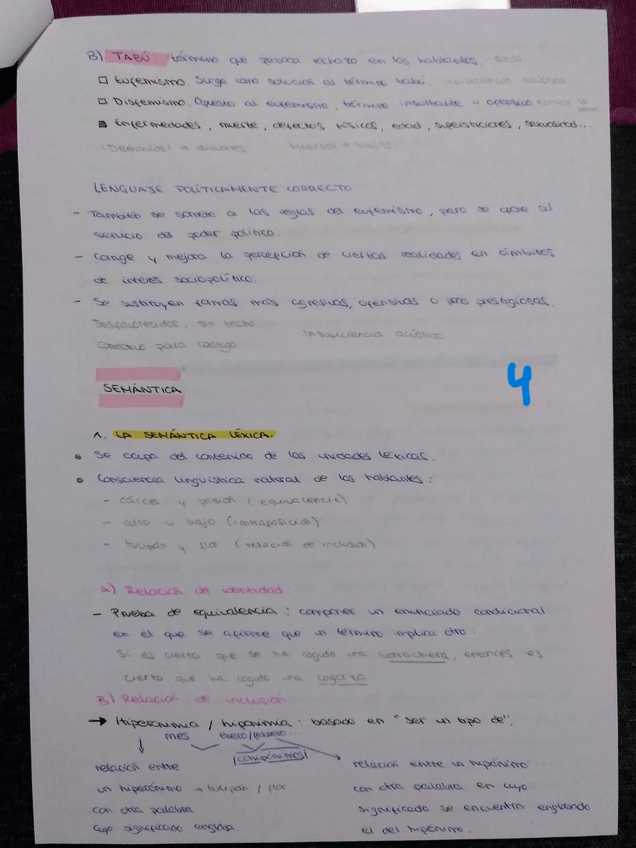 B) TABÚ término que provoca rechazo en los hablantes.
□ Eufemismo. Surge como solución al término tabú.
□ Disfemismo. Opuesto al eufemismo, término insultante u ofensivo
Enfermedades, muerte, defectos físicos, edad, supersticiones, sexualidad...
¡Demonios! → diantres
LENGUAJE POLÍTICAMENTE CORRECTO
- También se somete a las reglas del eufemismo, pero se pone al
servicio del poder político.
- Corrige y mejora la percepción de ciertas realidades en ámbitos
de interés sociopolítico.
- Se sustituyen formas más agresivas, ofensivas o poco prestigiosas.
Desfavorecidos, sin techo Insuficiencia acústica
Correctivo para castigo
4
SEMÁNTICA
1. LA SEMÁNTICA LÉXICA.
• Se ocupa del contenido de las unidades léxicas.
• Consciencia lingüística natural de los hablantes:
- cárcel y prisión (equivalencia)
- alto y bajo (contraposición)
- tulipán y flor (relación de inclusión)
A) Relación de identidad:
- Prueba de equivalencia: componer un enunciado condicional
en el que se afirme que un término implica otro:
Si es cierto que se ha cogido una borrachera, entonces es
cierto que ha cogido una cogorza
B) Relación de inclusión
→ Hiperonimia / hiponimia: basado en "ser un tipo de".
mes enero/febrero...
cohipónimos
relación entre
un hiperónimo → tulipán / flor
con otra palabra
cuyo significado engloba.
relación entre un hipónimo
con otra palabra en cuyo
significado se encuentra englobado
el del hipónimo.